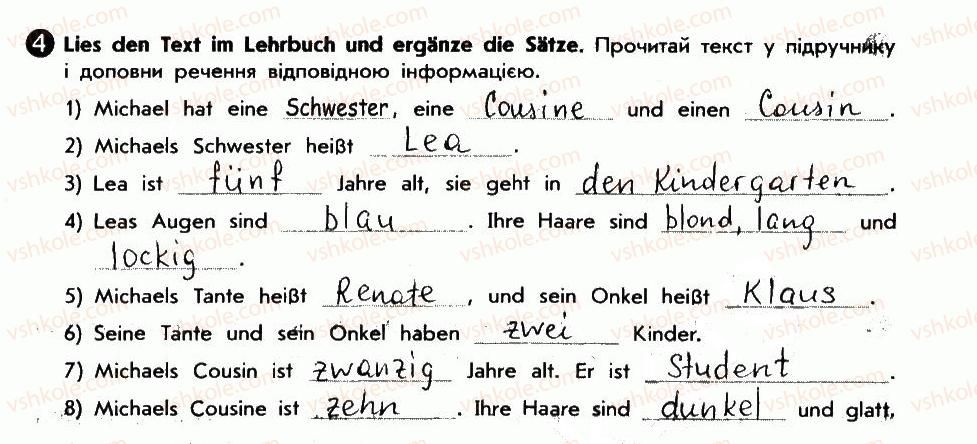 4 Lies den Text im Lehrbuch und ergänze die Sätze. Прочитай текст у підручнику
і доповни речення відповідною інформацією.
1) Michael hat eine Schwester, eine Cousine und einen Cousin.
2) Michaels Schwester heißt Lea.
3) Lea ist fünf Jahre alt, sie geht in den Kindergarten.
4) Leas Augen sind blau. Ihre Haare sind blond, lang und
lockig.
5) Michaels Tante heißt Renate, und sein Onkel heißt Klaus.
6) Seine Tante und sein Onkel haben zwei Kinder.
7) Michaels Cousin ist zwanzig Jahre alt. Er ist Student.
8) Michaels Cousine ist zehn. Ihre Haare sind dunkel und glatt,